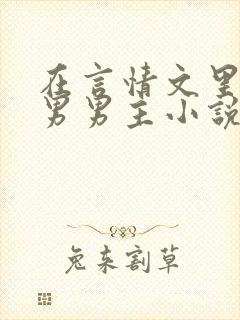 在言情文里
男男主小说
兔来割草